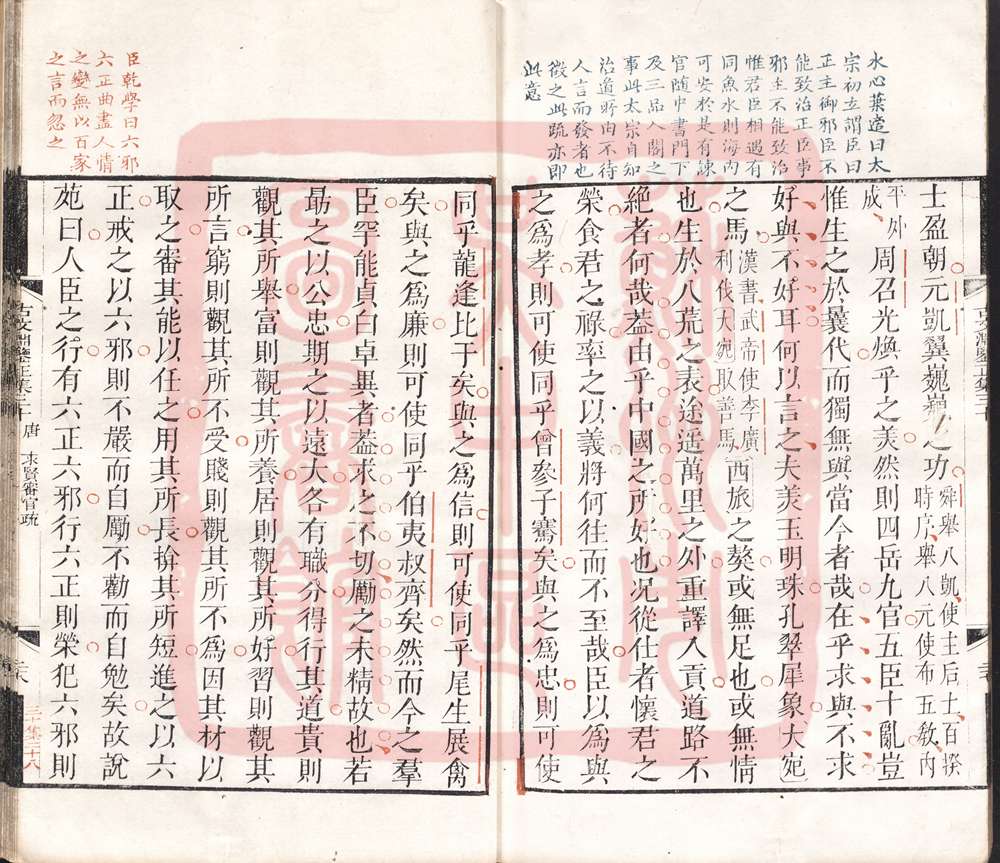 水心葉適曰太
宗初立謂臣曰
正主御邪臣不
能致治正臣事
邪主不能致治
惟君臣相遇有
同魚水則海内
可安於是有諫
官随中書門下
及三品入閤之
事此太宗自知
治道所由不待
人言而發者也
徵之此疏亦即
此意
士盈朝元凱翼巍巍之功舜舉八凱使主后土百揆
時序舉八元使布五敎内
平外
成周召光煥乎之美然則四岳九官五臣十亂豈
惟生之於曩代而獨無與當今者哉在乎求與不求
好與不好耳何以言之夫美玉明珠孔翠犀象大宛
之馬漢書武帝使李廣
利伐大宛取善馬西旅之獒或無足也或無情
也生於八荒之表途遥萬里之外重譯入貢道路不
絶者何哉葢由乎中國之所好也况從仕者懷君之
榮食君之祿率之以義將何往而不至哉臣以爲與
之爲孝則可使同乎曾參子騫矣與之爲忠則可使
臣乾學曰六邪
六正曲盡人情
之變無以百家
之言而忽之
同乎龍逢比干矣與之爲信則可使同乎尾生展禽
矣與之爲廉則可使同乎伯夷叔齊矣然而今之羣
臣罕能貞白卓異者葢求之不切勵之未精故也若
勗之以公忠期之以遠大各有職分得行其道貴則
觀其所舉富則觀其所養居則觀其所好習則觀其
所言窮則觀其所不受賤則觀其所不爲因其材以
取之審其能以任之用其所長揜其所短進之以六
正戒之以六邪則不嚴而自勵不勸而自勉矣故說
苑曰人臣之行有六正六邪行六正則榮犯六邪則
唐 求賢審官疏
三十集三十八